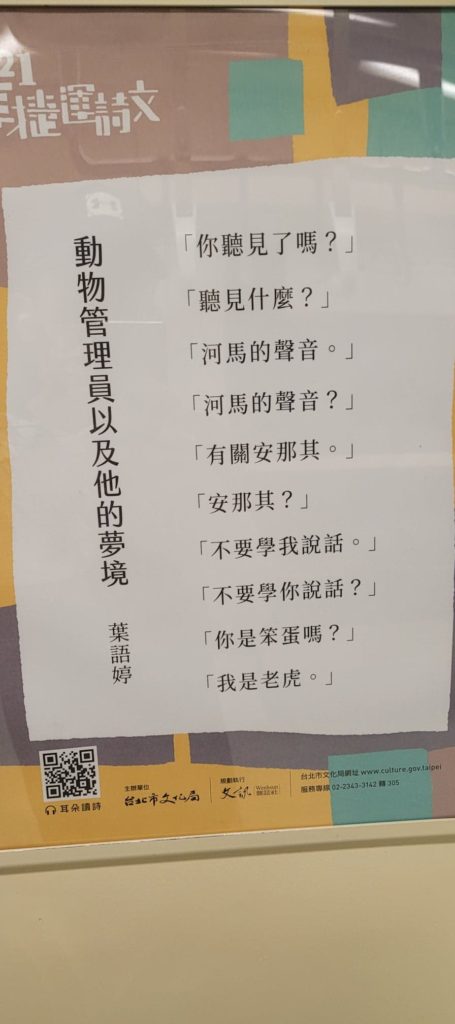 21
捷運詩文
動物管理員以及他的夢境
葉語婷
「你聽見了嗎？」
「聽見什麼？」
「河馬的聲音。」
「河馬的聲音？」
「有關安那其。」
「安那其？」
「不要學我說話。」
「不要學你說話？」
「你是笨蛋嗎？」
「我是老虎。」
耳朵讀詩
主辦單位
台北市文化局
規劃執行
文訊
台北市文化局網址 www.culture.gov.taipei
服務專線 02-2343-3142 轉 305